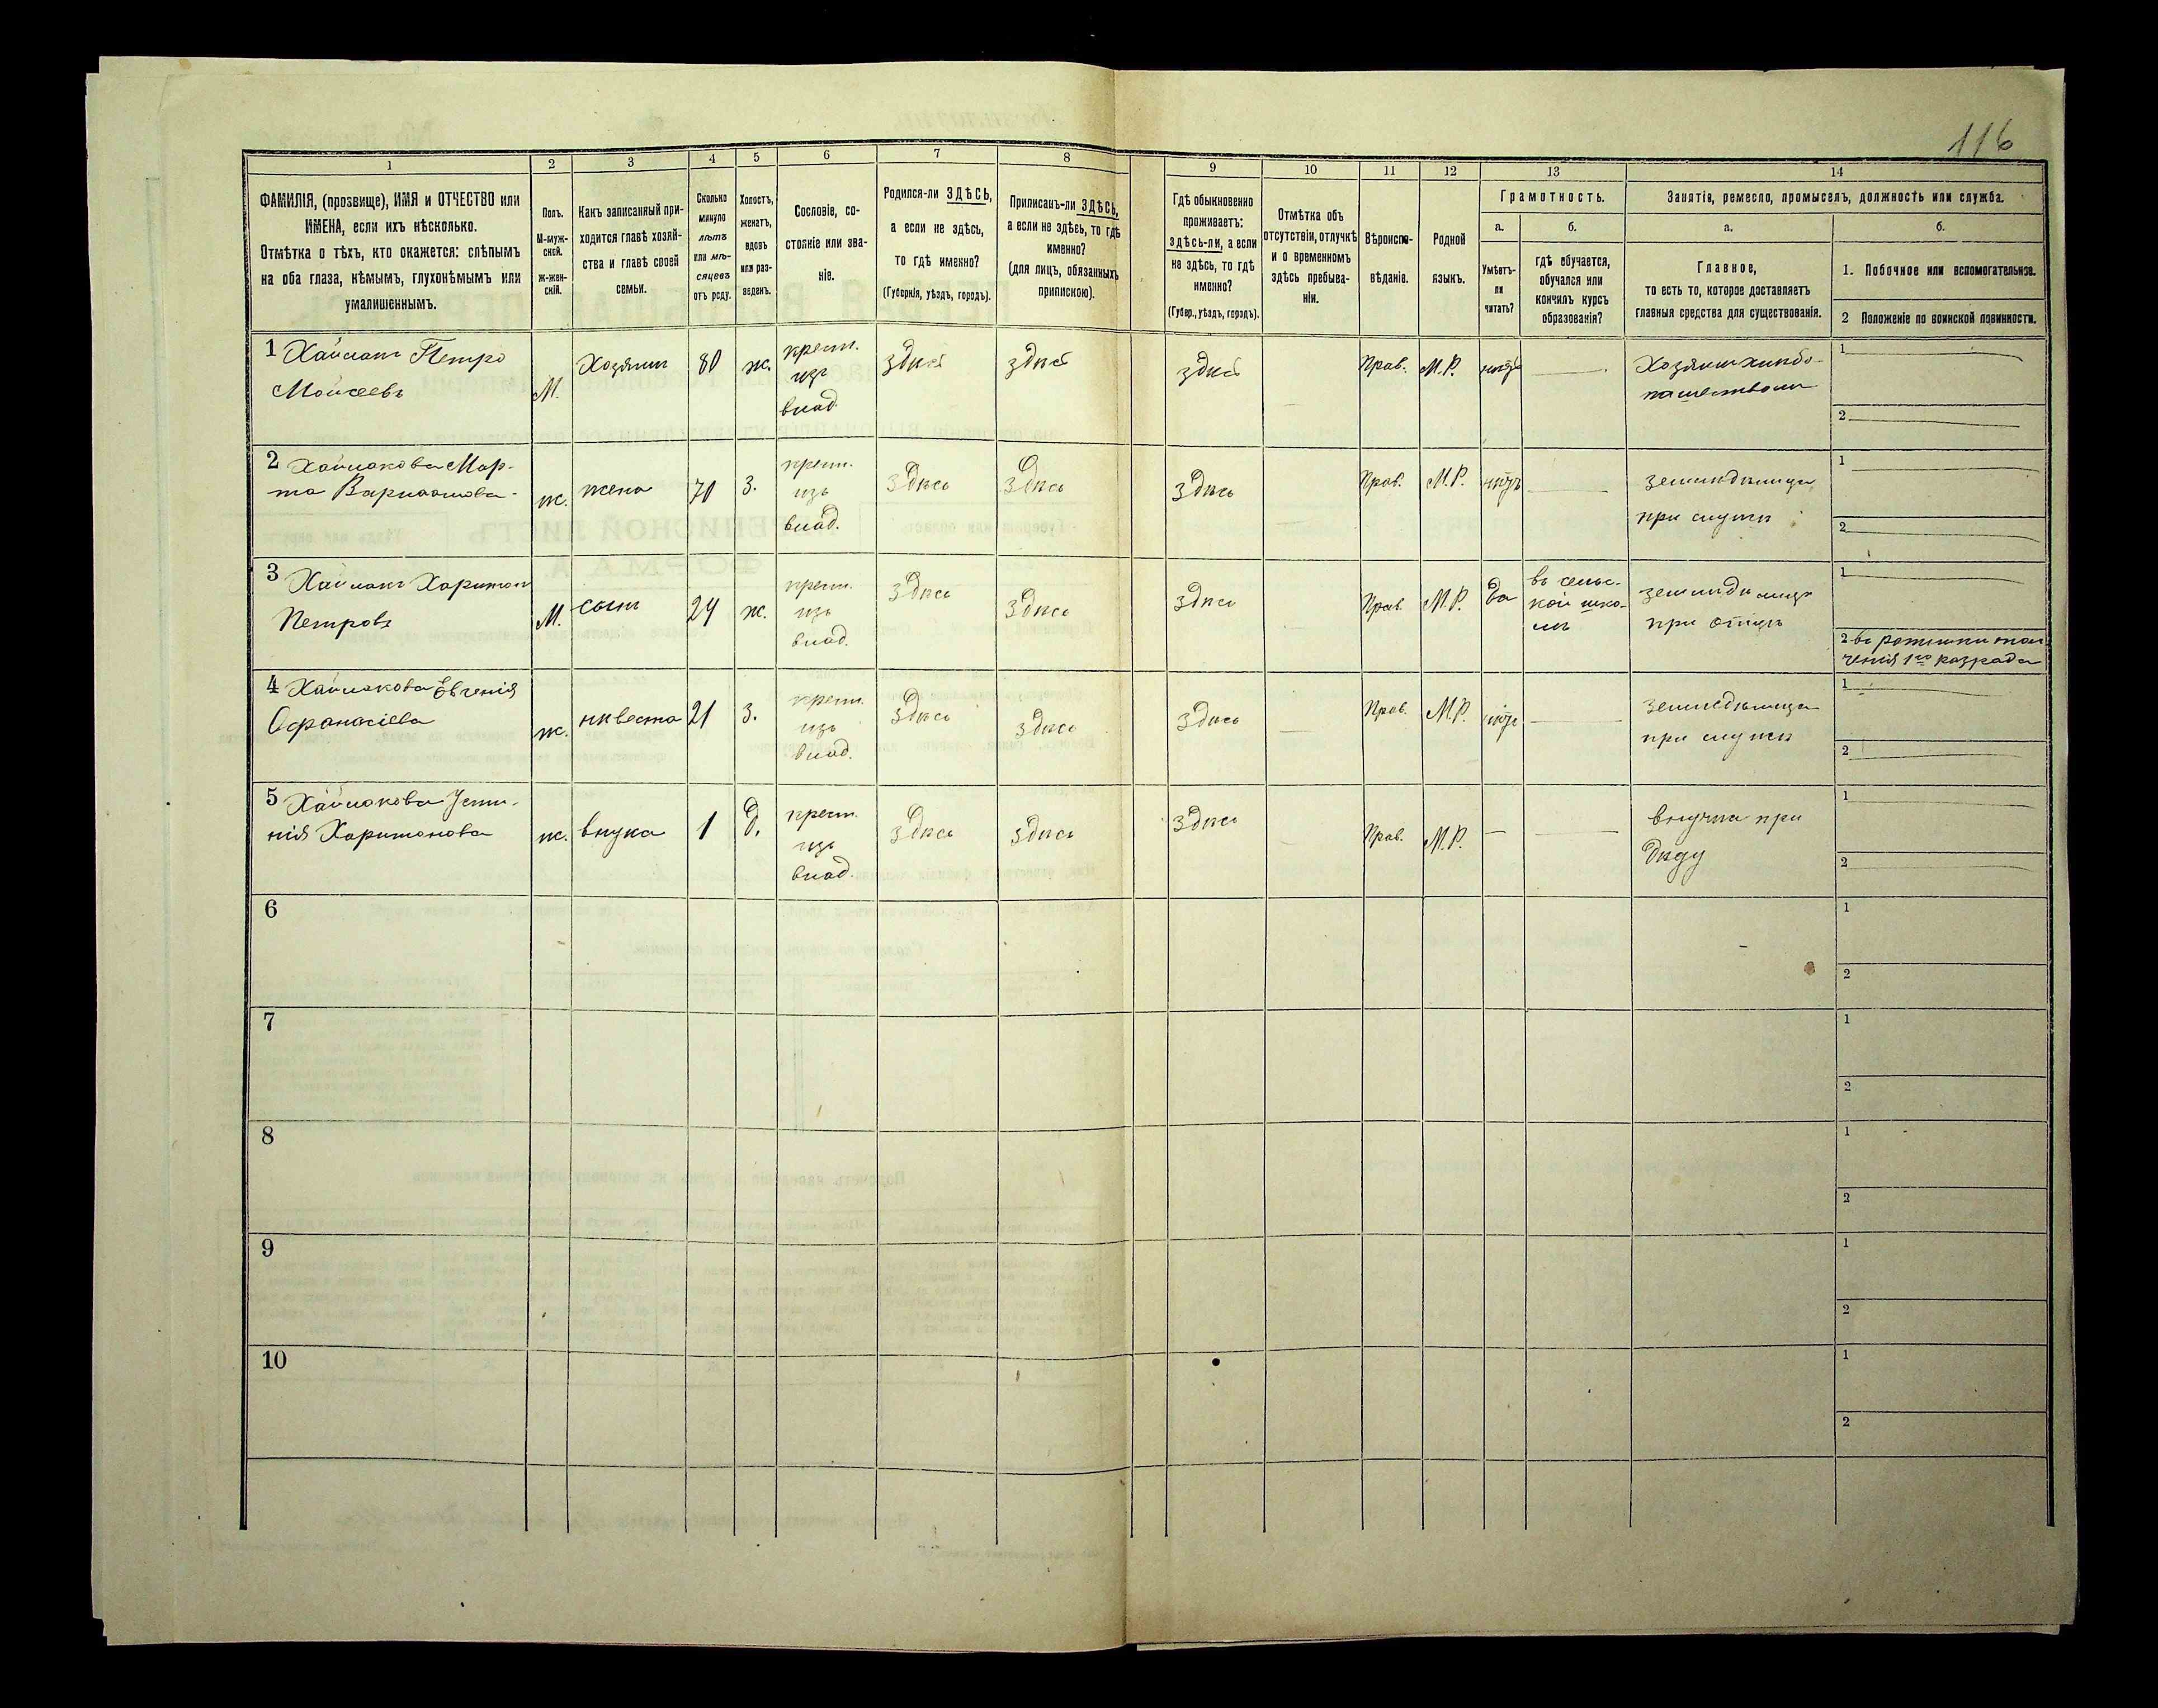 116
1 2 3 4 5 6 7 8 9 10 11 12 13 14
ФАМИЛІЯ, (прозвище), ИМЯ и ОТЧЕСТВО или
ИМЕНА, если ихъ нѣсколько.
Отмѣтка о тѣхъ, кто окажется: слѣпымъ
на оба глаза, нѣмымъ, глухонѣмымъ или
умалишеннымъ.
Полъ.
М-муж-
ской.
ж-жен-
скій.
Какъ записанный при-
ходится главѣ хозяй-
ства и главѣ своей
семьи.
Сколько
минуло
лѣтъ
или мѣ-
сяцевъ
отъ роду.
Холостъ,
женатъ,
вдовъ
или раз-
веденъ.
Сословіе, со-
стояніе или зва-
ніе.
Родился-ли ЗДѢСЬ,
а если не здѣсь,
то гдѣ именно?
(Губернія, уѣздъ, городъ).
Приписанъ-ли ЗДѢСЬ,
а если не здѣсь, то гдѣ
именно?
(для лицъ, обязанныхъ
припискою).
Гдѣ обыкновенно
проживаетъ:
здѣсь-ли, а если
не здѣсь, то гдѣ
именно?
(Губер., уѣздъ, городъ).
Отмѣтка объ
отсутствіи, отлучкѣ
и о временномъ
здѣсь пребыва-
ніи.
Вѣроиспо-
вѣданіе.
Родной
языкъ.
Грамотность.
а.
Умѣетъ-
ли
читать?
б.
гдѣ обучается,
обучался или
кончилъ курсъ
образованія?
Занятія, ремесло, промыселъ, должность или служба.
а.
Главное,
то есть то, которое доставляетъ
главныя средства для существованія.
б.
1. Побочное или вспомогательное.
2 Положеніе по воинской повинности.
1 Хаймакъ Петро
Мойсеевъ
М.
Хозяинъ
80
ж.
крест.
изъ
влад.
здѣсь
здѣсь
здѣсь
Прав.
М.Р.
нѣтъ
Хозяинъ хлѣбо-
пашествомъ
1
2
2 Хаймакова Мар-
та Варламова
ж.
жена
70
з.
крест.
изъ
влад.
здѣсь
здѣсь
здѣсь
Прав.
М.Р.
нѣтъ
земледѣлица
при мужѣ
1
2
3 Хаймакъ Харитонъ
Петровъ
М.
сынъ
24
ж.
крест.
изъ
влад.
здѣсь
здѣсь
здѣсь
Прав.
М.Р.
да
въ сельс-
кой шко-
лѣ
при отцѣ
1
2 въ
ченія 1го разряда
4 Хаймакова Евгенія
Афанасіева
ж.
нивеста
21
з.
крест.
изъ
влад.
здѣсь
здѣсь
здѣсь
Прав.
М.Р.
нѣтъ
земледѣлица
при мужѣ
1
2
5 Хаймакова Усти-
нія Харитонова
ж.
внука
1
д.
крест.
изъ
влад.
здѣсь
здѣсь
здѣсь
Прав.
М.Р.
внучка при
дѣду
1
2
6
1
2
7
1
2
8
1
2
9
1
2
10
1
2